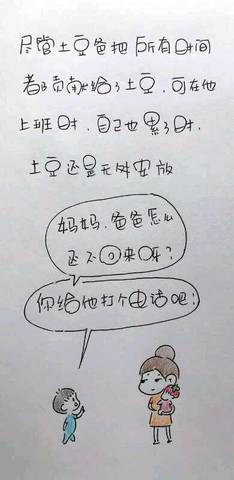 尽管土豆爸把所有时间
都贡献给了土豆,可在他
上班时,自己也累了时,
土豆还是无处安放
妈妈,爸爸怎么
还不回来呀?
你给他打个电话吧!